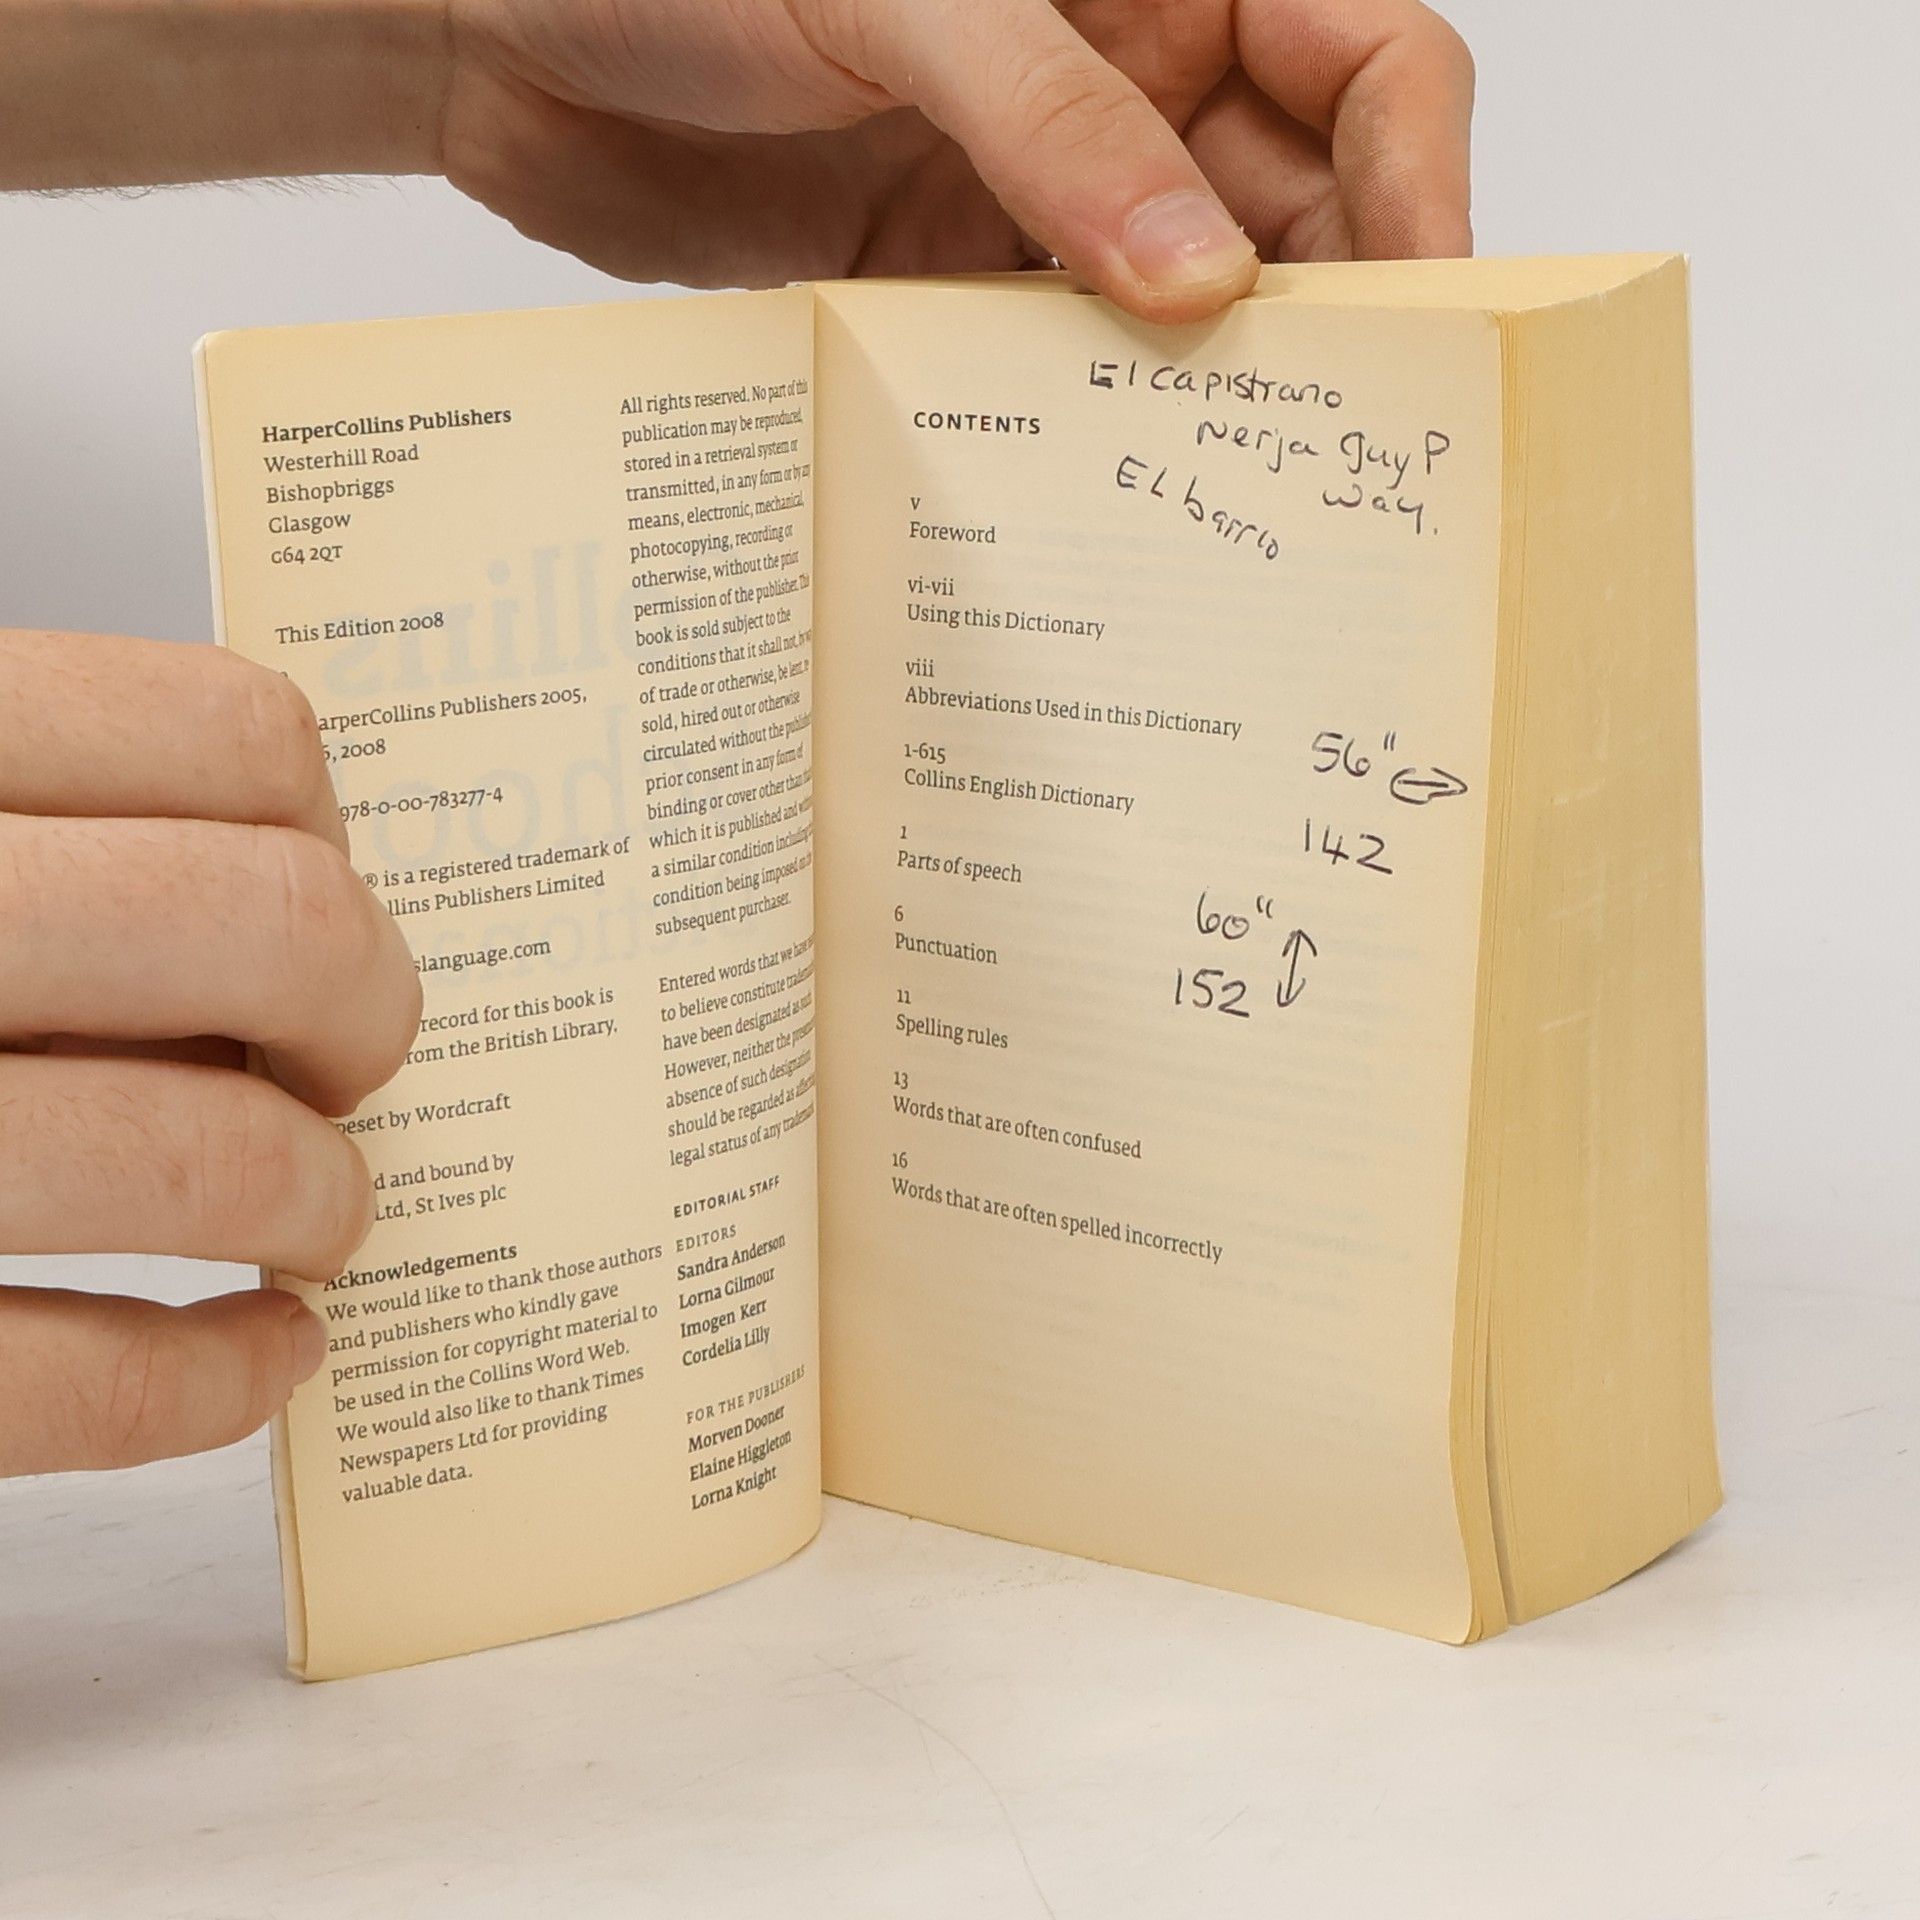 HarperCollins Publishers
Westerhill Road
Bishopbriggs
Glasgow
G64 2QT
This Edition 2008
arperCollins Publishers 2005,
, 2008
978-0-00-783277-4
® is a registered trademark of
llins Publishers Limited
slanguage.com
record for this book is
rom the British Library,
peset by Wordcraft
d and bound by
Ltd, St Ives plc
Acknowledgements
We would like to thank those authors
and publishers who kindly gave
permission for copyright material to
be used in the Collins Word Web.
We would also like to thank Times
Newspapers Ltd for providing
valuable data.
All rights reserved. No part of this
publication may be reproduced,
stored in a retrieval system or
transmitted, in any form or by any
means, electronic, mechanical,
photocopying, recording or
otherwise, without the prior
permission of the publisher. This
book is sold subject to the
conditions that it shall not, by
of trade or otherwise, be lent, re
sold, hired out or otherwise
circulated without the
prior consent in any form of
binding or cover other than
which it is published and
a similar condition including
condition being imposed on
subsequent purchaser.
Entered words that we have
to believe constitute
have been designated as such
However, neither the
absence of such designation
should be regarded as
legal status of any
EDITORIAL STAFF
EDITORS
Sandra Anderson
Lorna Gilmour
Imogen Kerr
Cordelia Lilly
FOR THE PUBLISHERS
Morven Dooner
Elaine Higgleton
Lorna Knight
El capistrano
Nerja Guy P
Way.
EL barrio
CONTENTS
v
Foreword
vi-vii
Using this Dictionary
viii
Abbreviations Used in this Dictionary
1-615
Collins English Dictionary
1
Parts of speech
6
Punctuation
11
Spelling rules
13
Words that are often confused
16
Words that are often spelled incorrectly
56"
142
60"
152